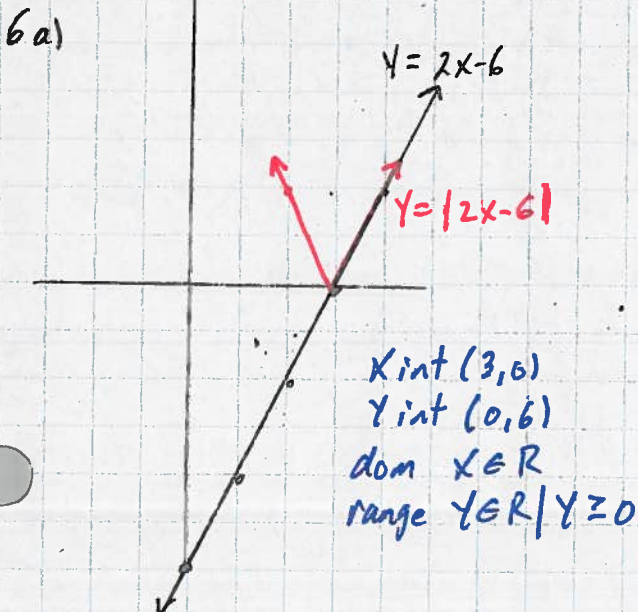 6 a)
Y = 2x-6
Y = |2x-6|
X int (3,0)
Y int (0,6)
dom X ∈ R
range Y ∈ R | Y ≥ 0